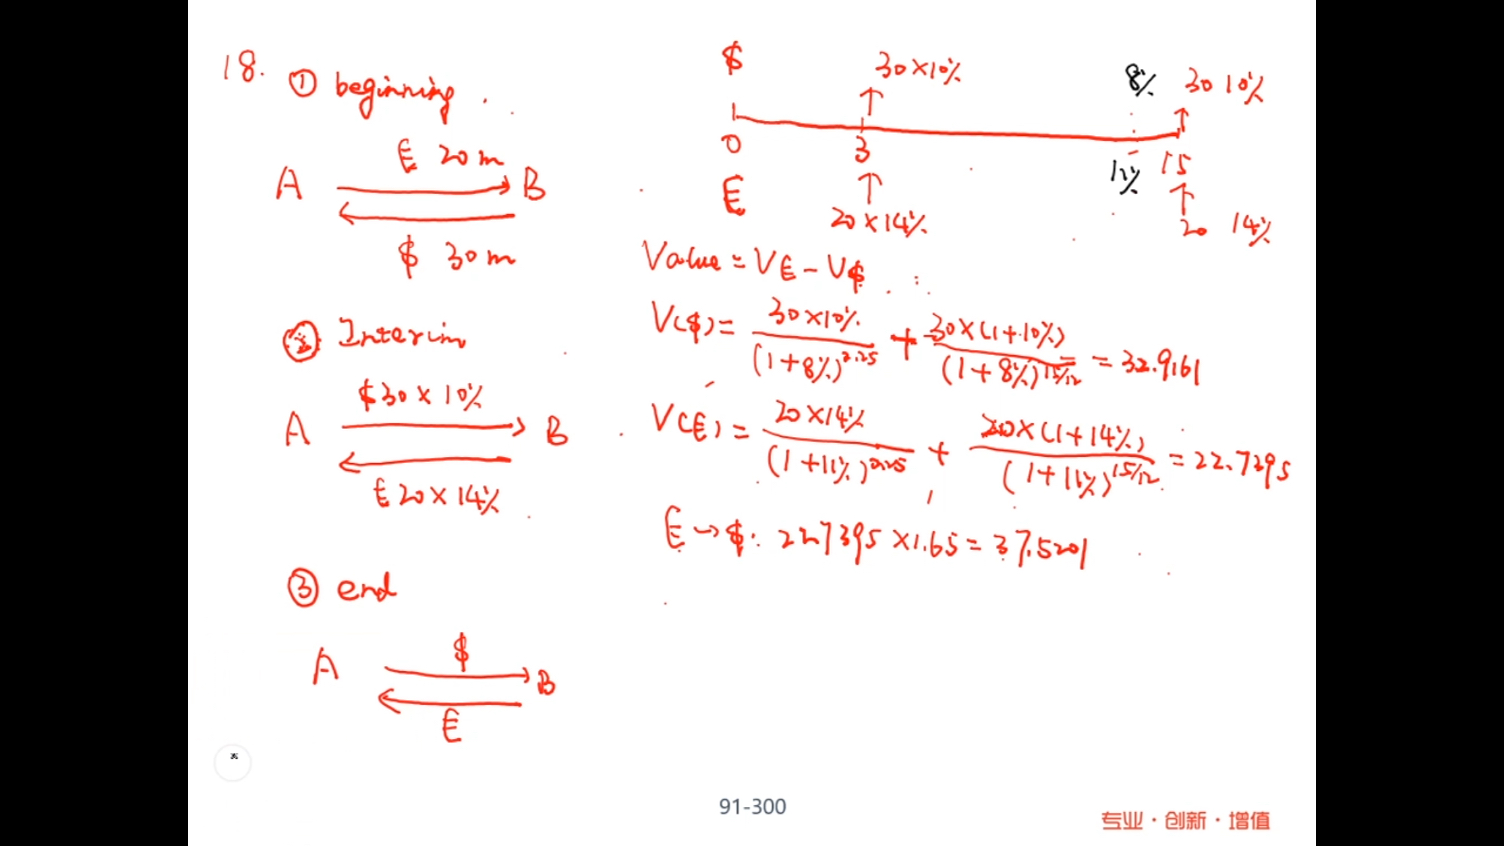 18. ① beginning
£ 20 m
A B
$ 30 m
② Interim
$30 × 10%
A B
£ 20 × 14%
③ end
$
A B
£
$ 30×10% 8% 30 10%
0 3 11% 15
£ 20 × 14% 20 14%
Value = V£ - V$
V($) = 30×10% / (1+8%)^0.25 + 30×(1+10%) / (1+8%)^15/12 = 32.9161
V(£) = 20×14% / (1+11%)^0.25 + 20×(1+14%) / (1+11%)^15/12 = 22.7395
£ → $: 22.7395 ×1.65 = 37.5201
91-300
专业·创新·增值